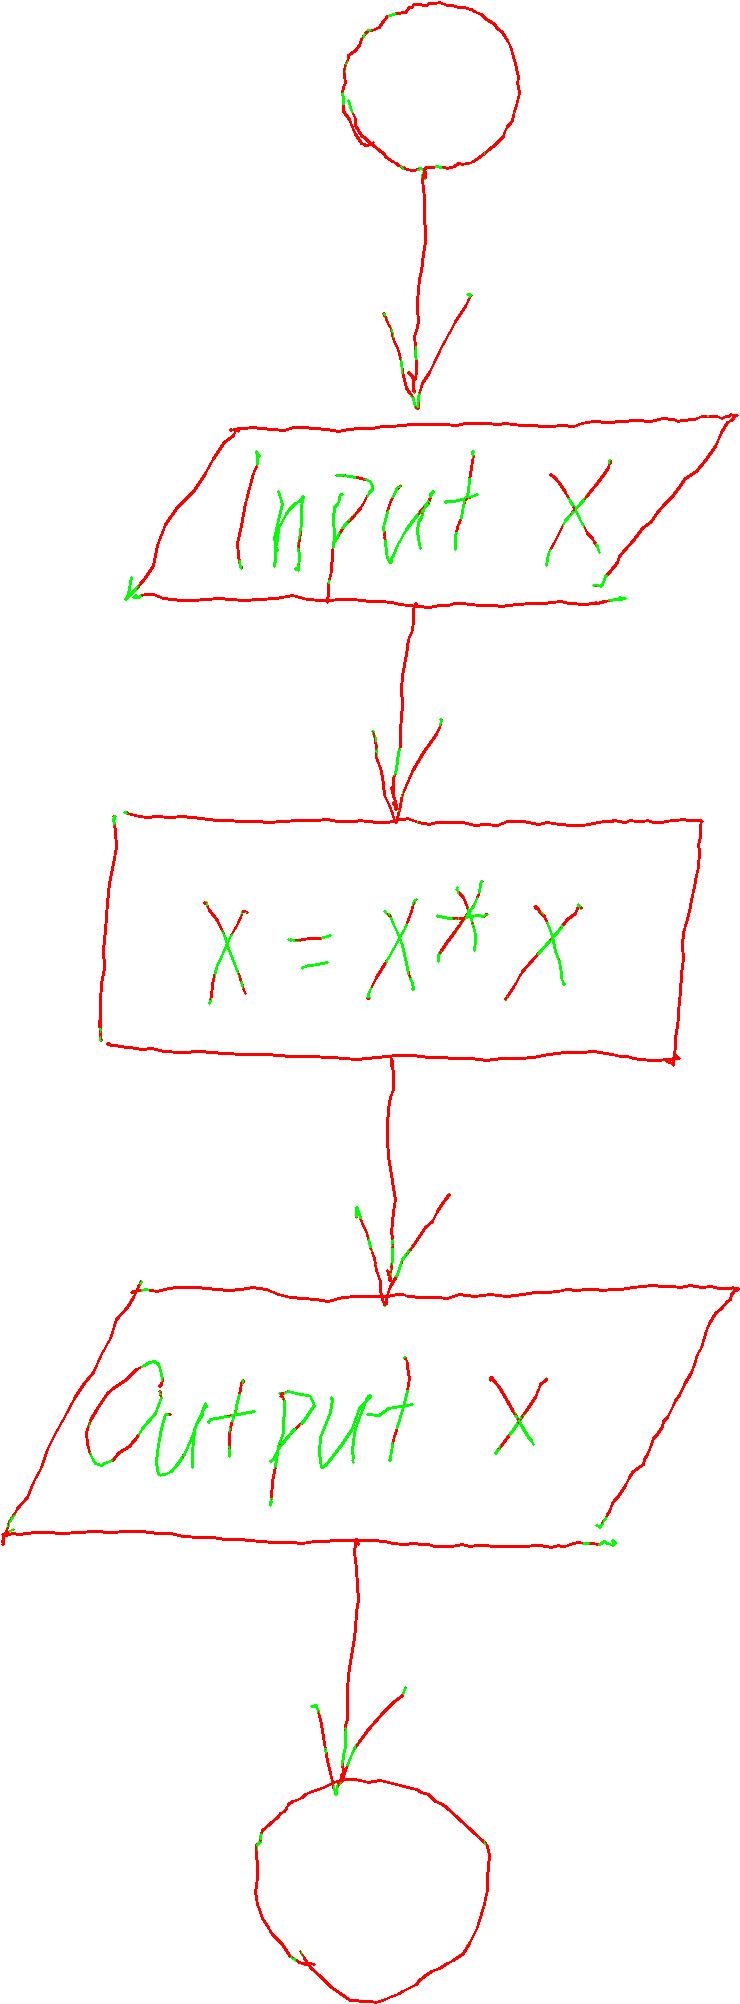 Input X
X = X * X
Output X